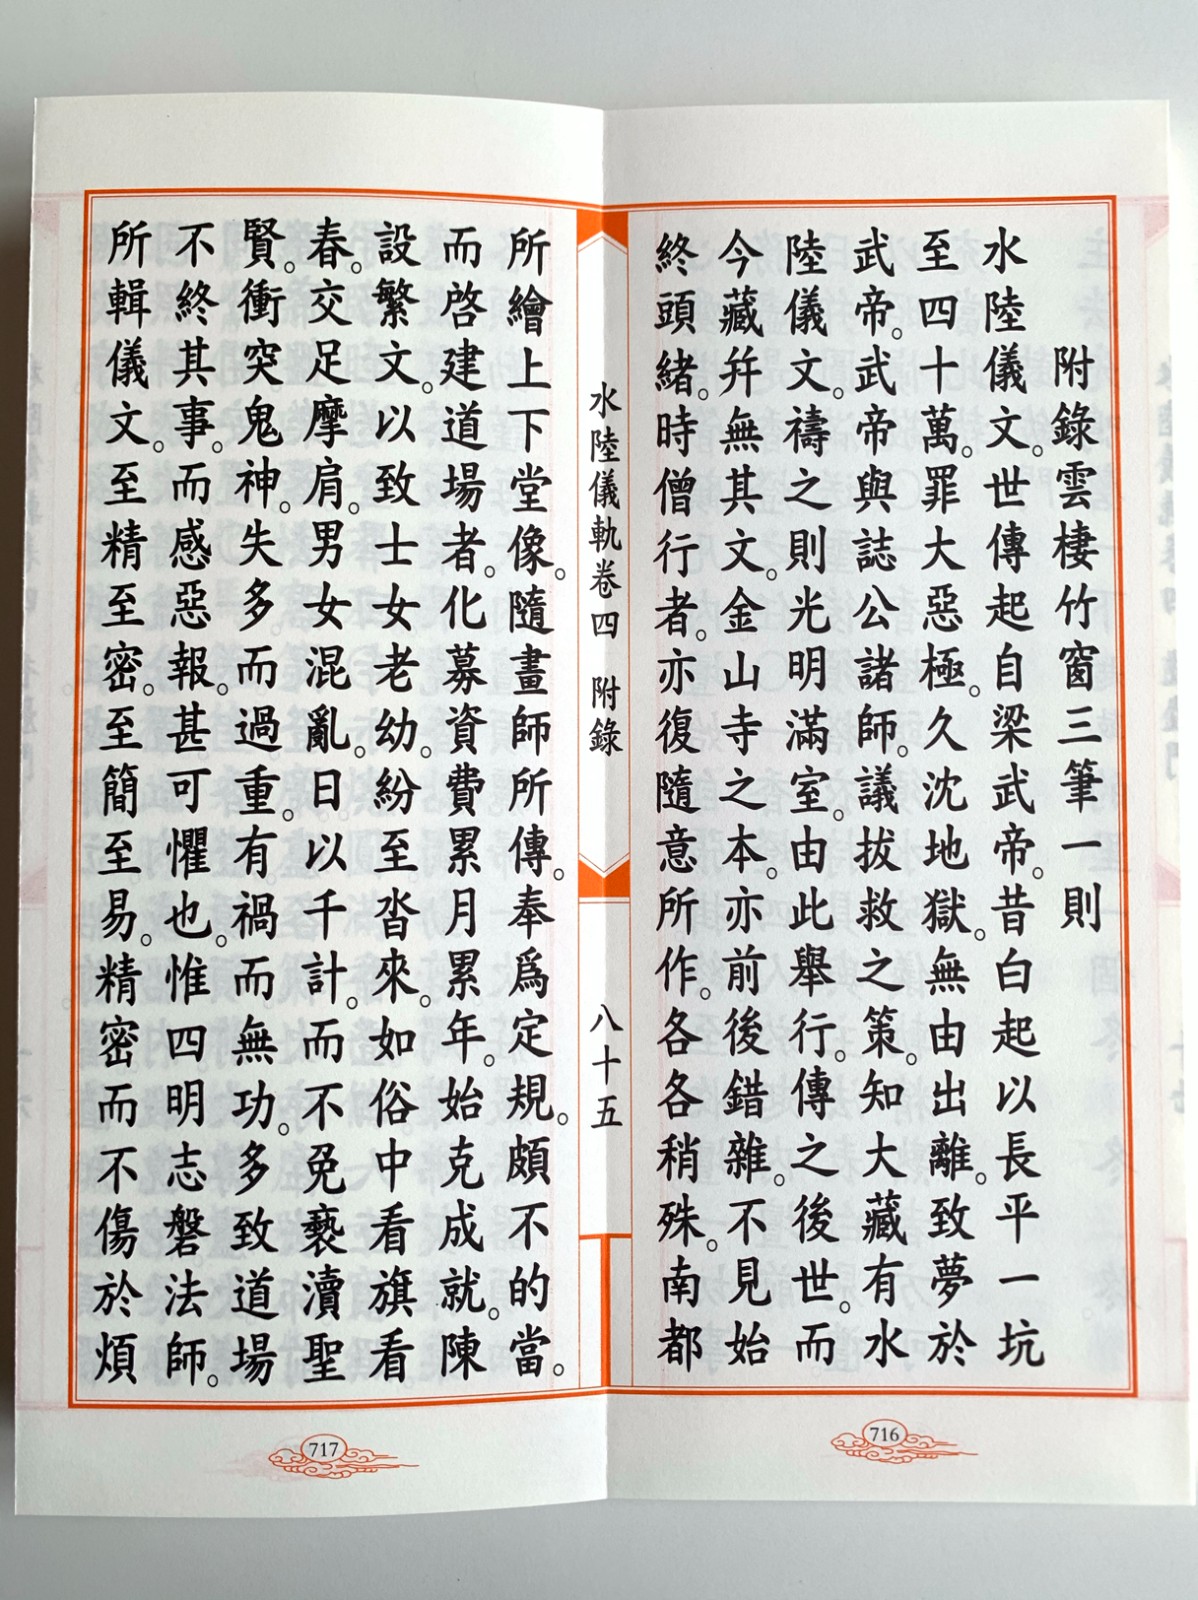 附錄雲棲竹窗三筆一則
水陸儀文。世傳起自梁武帝。昔白起以長平一坑
至四十萬。罪大惡極。久沈地獄。無由出離。致夢於
武帝。武帝與誌公諸師。議拔救之策。知大藏有水
陸儀文。禱之則光明滿室。由此舉行。傳之後世。而
今藏幷無其文。金山寺之本。亦前後錯雜。不見始
終頭緒。時僧行者。亦復隨意所作。各各稍殊。南都
水陸儀軌卷四 附錄 八十五
所繪上下堂像。隨畫師所傳。奉爲定規。頗不的當。
而啓建道場者。化募資費累月累年。始克成就。陳
設繁文。以致士女老幼。紛至沓來。如俗中看旗看
春。交足摩肩。男女混亂。日以千計。而不免褻瀆聖
賢。衝突鬼神。失多而過重。有禍而無功。多致道場
不終其事。而感惡報。甚可懼也。惟四明志磐法師。
所輯儀文。至精至密。至簡至易。精密而不傷於煩
716
717